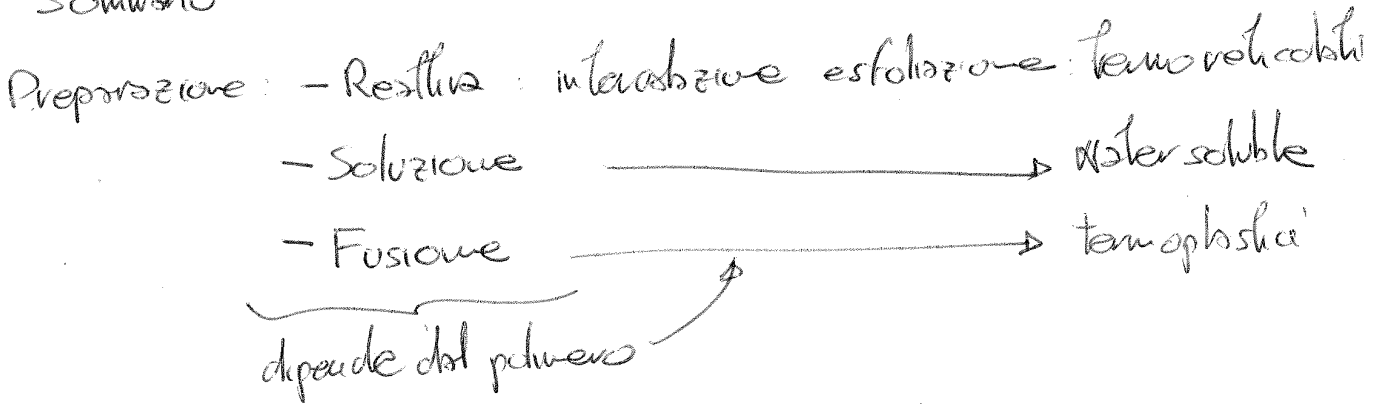 Sommario
Preparazione : - Reattiva : intercalazione esfoliazione : termoreticolabili
- Soluzione → water soluble
- Fusione → termoplastici
dipende dal polimero